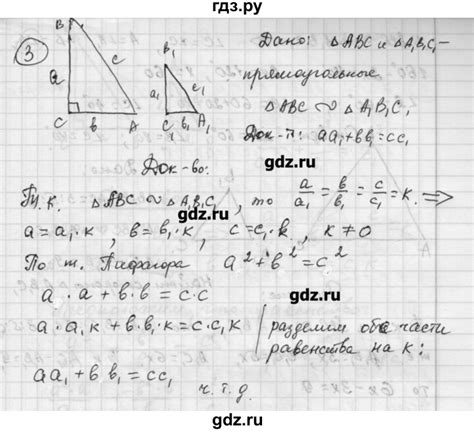 гдз.ру
3
B
a
c
C
b
A
B₁
a₁
c₁
C₁
A₁
Дано: △ABC и △A₁B₁C₁ –
прямоугольные
△ABC ∾ △A₁B₁C₁
Док-ть: aa₁+bb₁=cc₁
gdz.ru
Док-во:
Т.к. △ABC ∾ △A₁B₁C₁, то a/a₁ = b/b₁ = c/c₁ = k. ⟹
a=a₁·k, b=b₁·k, c=c₁·k, k≠0
По т. Пифагора a²+b²=c²
gdz.ru
a·a+b·b=c·c
a·a₁k+b·b₁k=c·c₁k | разделим обе части
равенства на k:
aa₁+bb₁=cc₁
ч.т.д.
gdz.ru
gdz.ru